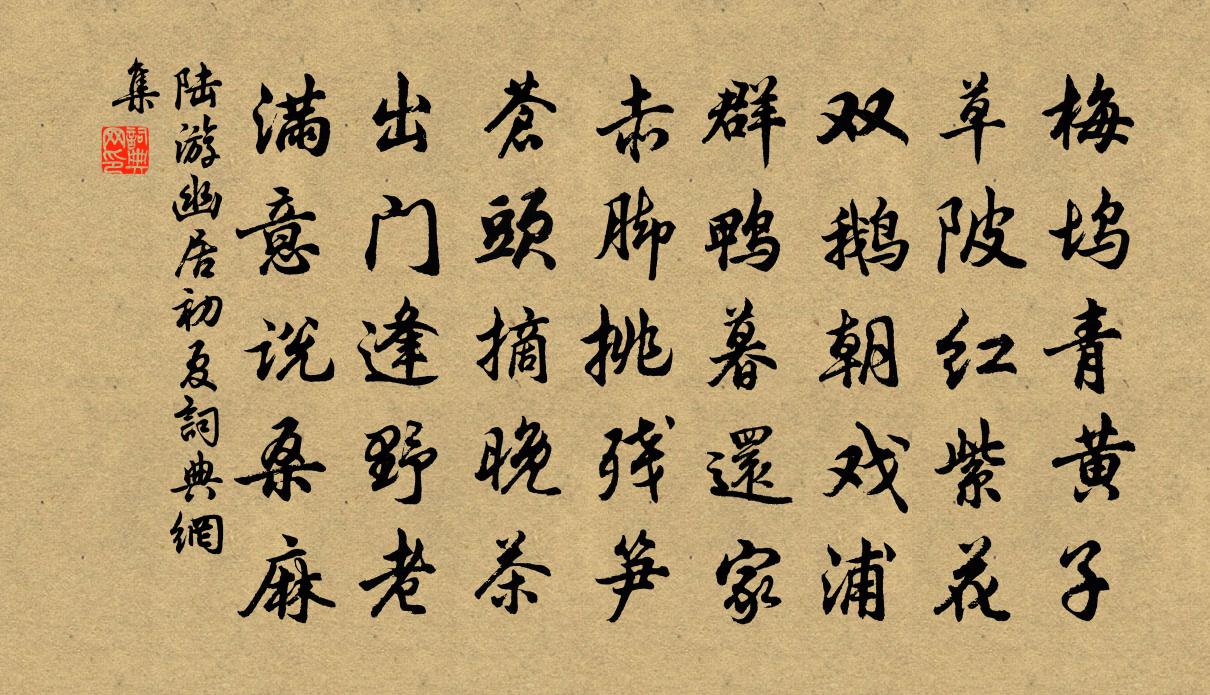 梅坞青黄子
草陂红紫花
双鹅朝戏浦
群鸭暮還家
赤脚挑残笋
蒼頭摘晚茶
出门逢野老
满意说桑麻
陆游幽居初夏詞典網
集
詞典网印